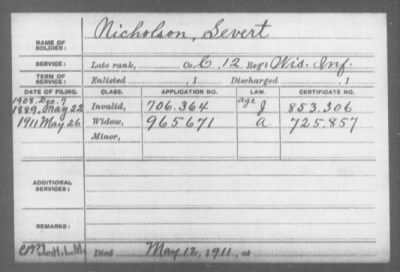 NAME OF SOLDIER: Nicholson, Severt
SERVICE: Late rank, Co. C, 12 Reg't Wis. Inf.
TERM OF SERVICE: Enlisted , 1 Discharged , 1
DATE OF FILING. CLASS. APPLICATION NO. LAW. CERTIFICATE NO.
1908. Dec. 7 age
1889, May 22 Invalid, 706.364 J 853.306
1911 May 26 Widow, 965671 a 725.857
Minor,
ADDITIONAL SERVICES:
REMARKS:
H.L.M. Died May 12, 1911, at